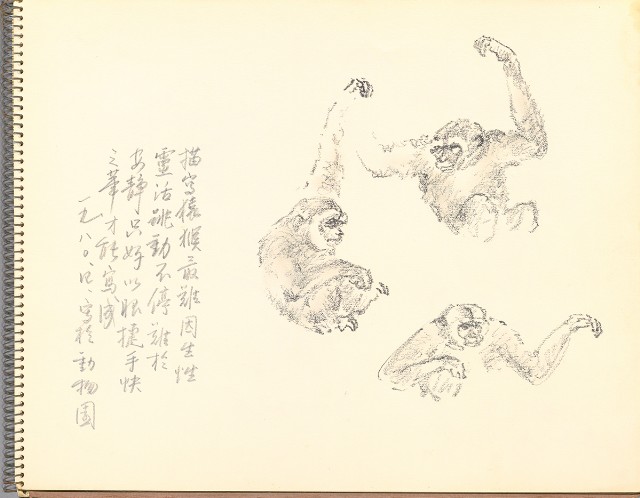 描寫猿猴最難因生性
靈活跳動不停難於
安静只好以眼捷手快
之筆才能寫成
一九八〇、只、写於動物園